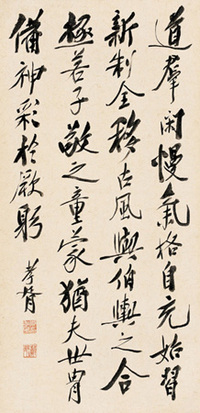 道群闲慢气格自充始習
新制全移古風與伯輿之合
極若子敬之童蒙猶夫世胄
備神彩於厥躬
孝胥